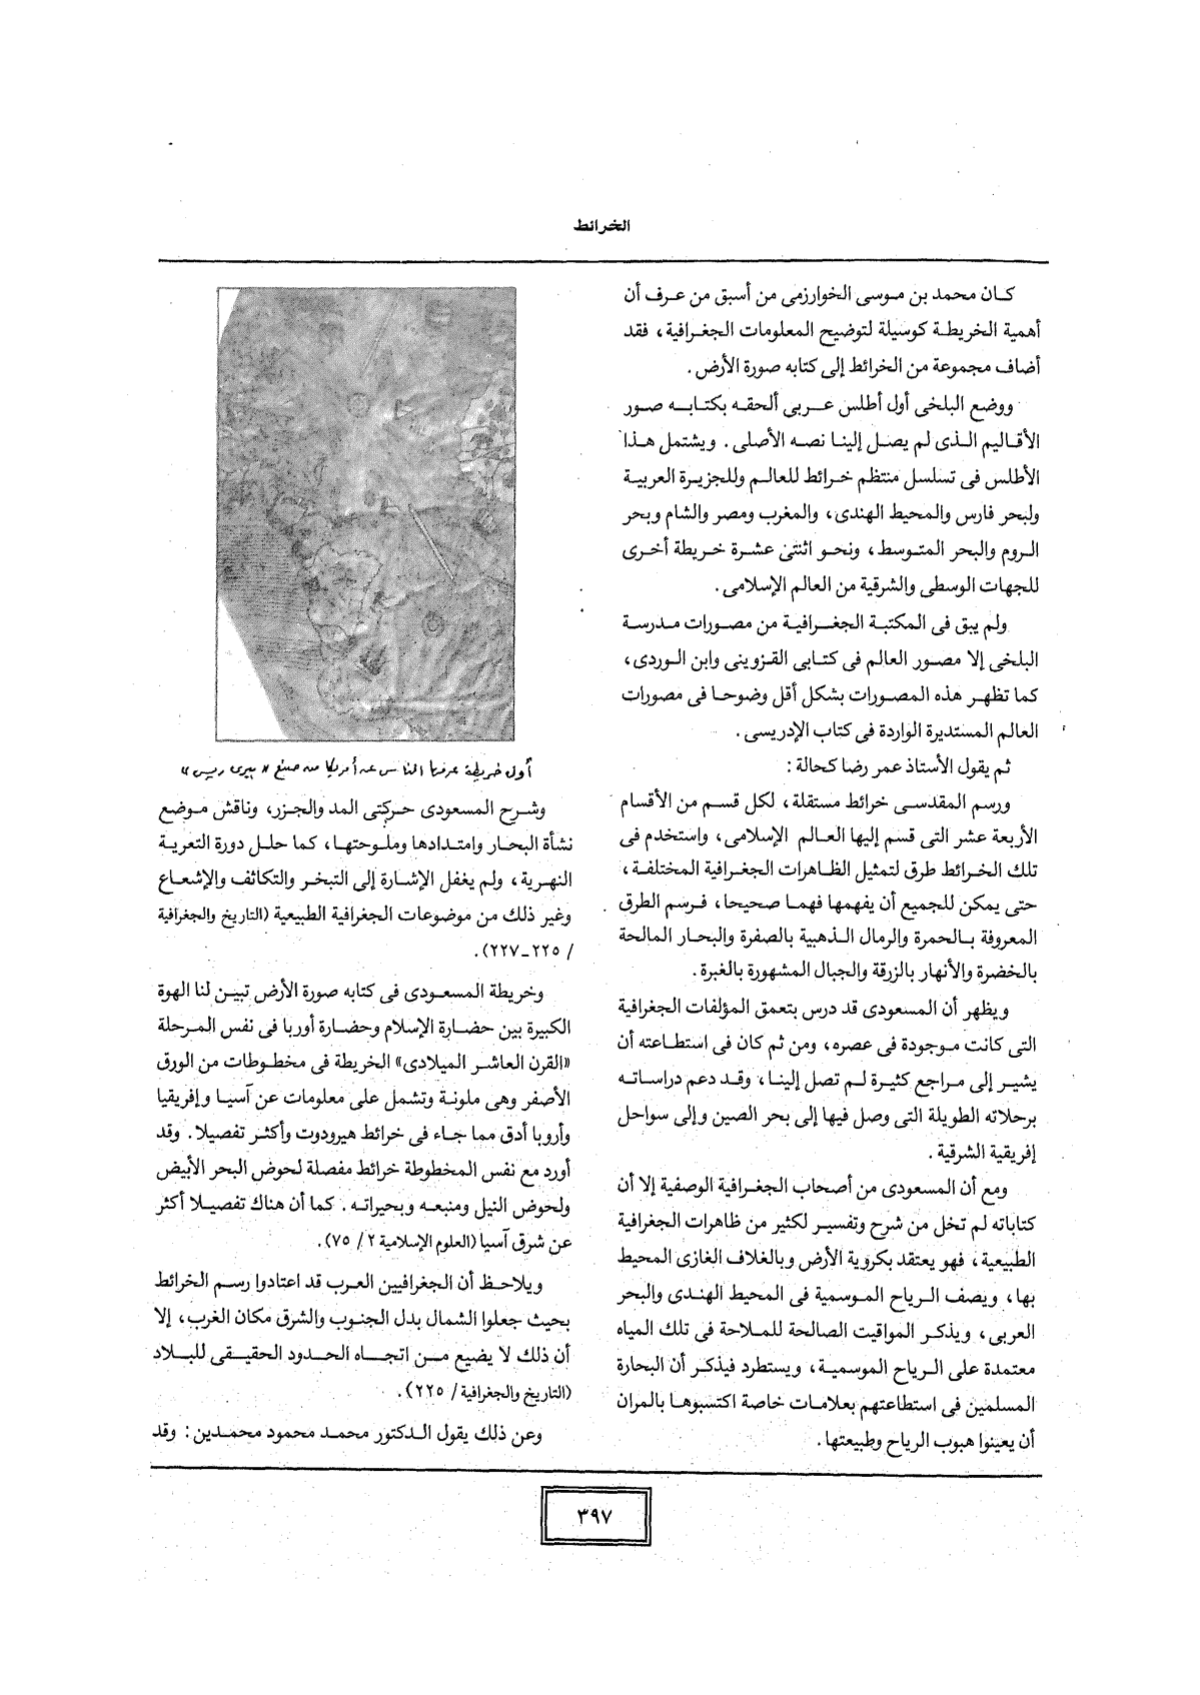 الخرائط
كان محمد بن موسى الخوارزمى من أسبق من عرف أن
أهمية الخريطة كوسيلة لتوضيح المعلومات الجغرافية، فقد
أضاف مجموعة من الخرائط إلى كتابه صورة الأرض.
ووضع البلخى أول أطلس عربى ألحقه بكتابه صور
الأقاليم الذى لم يصل إلينا نصه الأصلى. ويشتمل هذا
الأطلس فى تسلسل منتظم خرائط للعالم وللجزيرة العربية
ولبحر فارس والمحيط الهندى، والمغرب ومصر والشام وبحر
الروم والبحر المتوسط، ونحو اثنتى عشرة خريطة أخرى
للجهات الوسطى والشرقية من العالم الإسلامى.
ولم يبق فى المكتبة الجغرافية من مصورات مدرسة
البلخى إلا مصور العالم فى كتابى القزوينى وابن الوردى،
كما تظهر هذه المصورات بشكل أقل وضوحا فى مصورات
العالم المستديرة الواردة فى كتاب الإدريسى.
ثم يقول الأستاذ عمر رضا كحالة:
ورسم المقدسى خرائط مستقلة، لكل قسم من الأقسام
الأربعة عشر التى قسم إليها العالم الإسلامى، واستخدم فى
تلك الخرائط طرق لتمثيل الظاهرات الجغرافية المختلفة،
حتى يمكن للجميع أن يفهمها فهما صحيحا، فرسم الطرق
المعروفة بالحمرة والرمال الذهبية بالصفرة والبحار المالحة
بالخضرة والأنهار بالزرقة والجبال المشهورة بالغبرة.
ويظهر أن المسعودى قد درس بتعمق المؤلفات الجغرافية
التى كانت موجودة فى عصره، ومن ثم كان فى استطاعته أن
يشير إلى مراجع كثيرة لم تصل إلينا، وقد دعم دراساته
برحلاته الطويلة التى وصل فيها إلى بحر الصين وإلى سواحل
إفريقية الشرقية.
ومع أن المسعودى من أصحاب الجغرافية الوصفية إلا أن
كتاباته لم تخل من شرح وتفسير لكثير من ظاهرات الجغرافية
الطبيعية، فهو يعتقد بكروية الأرض وبالغلاف الغازى المحيط
بها، ويصف الرياح الموسمية فى المحيط الهندى والبحر
العربى، ويذكر المواقيت الصالحة للملاحة فى تلك المياه
معتمدة على الرياح الموسمية، ويستطرد فيذكر أن البحارة
المسلمين فى استطاعتهم بعلامات خاصة اكتسبوها بالمران
أن يعينوا هبوب الرياح وطبيعتها.
أول خريطة عرفها الناس عن أمريكا من صنع «بيرى ريس»
وشرح المسعودى حركتى المد والجزر، وناقش موضع
نشأة البحار وامتدادها وملوحتها، كما حلل دورة التعرية
النهرية، ولم يغفل الإشارة إلى التبخر والتكاثف والإشعاع
وغير ذلك من موضوعات الجغرافية الطبيعية (التاريخ والجغرافية
/ ٢٢٥-٢٢٧).
وخريطة المسعودى فى كتابه صورة الأرض تبين لنا الهوة
الكبيرة بين حضارة الإسلام وحضارة أوربا فى نفس المرحلة
«القرن العاشر الميلادى» الخريطة فى مخطوطات من الورق
الأصفر وهى ملونة وتشمل على معلومات عن آسيا وإفريقيا
وأروبا أدق مما جاء فى خرائط هيرودوت وأكثر تفصيلا. وقد
أورد مع نفس المخطوطة خرائط مفصلة لحوض البحر الأبيض
ولحوض النيل ومنبعه وبحيراته. كما أن هناك تفصيلا أكثر
عن شرق آسيا (العلوم الإسلامية ٢/ ٧٥).
ويلاحظ أن الجغرافيين العرب قد اعتادوا رسم الخرائط
بحيث جعلوا الشمال بدل الجنوب والشرق مكان الغرب، إلا
أن ذلك لا يضيع من اتجاه الحدود الحقيقى للبلاد
(التاريخ والجغرافية/ ٢٢٥).
وعن ذلك يقول الدكتور محمد محمود محمدين: وقد
٣٩٧